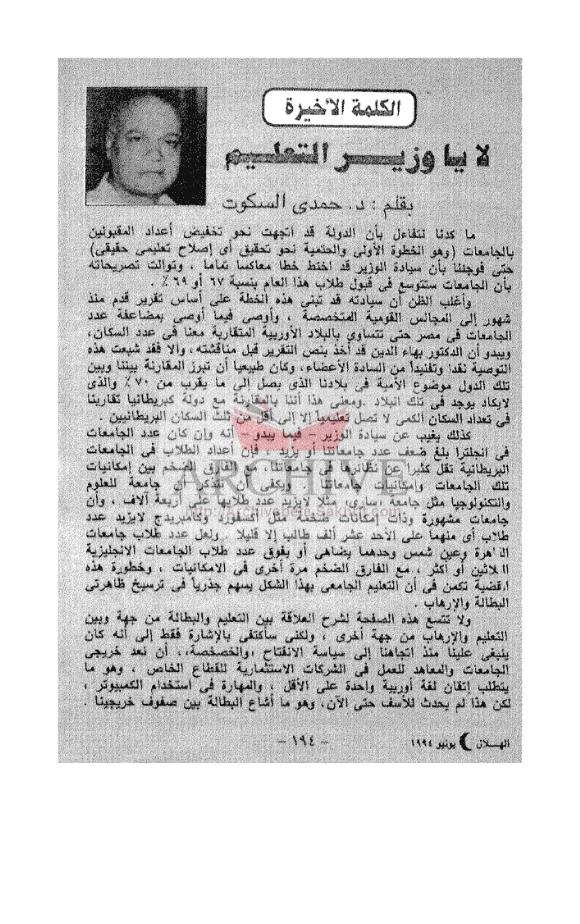 الكلمة الأخيرة
لا يا وزير التعليم
بقلم : د. حمدى السكوت
ما كدنا نتفاءل بأن الدولة قد اتجهت نحو تخفيض أعداد المقبولين
بالجامعات (وهو الخطوة الأولى والحتمية نحو تحقيق أى إصلاح تعليمى حقيقى)
حتى فوجئنا بأن سيادة الوزير قد اختط خطا معاكسا تماما ، وتوالت تصريحاته
بأن الجامعات ستتوسع فى قبول طلاب هذا العام بنسبة ٦٧ أو ٦٩ ٪ .
وأغلب الظن أن سيادته قد تبنى هذه الخطة على أساس تقرير قدم منذ
شهور إلى المجالس القومية المتخصصة ، وأوصى فيما أوصى بمضاعفة عدد
الجامعات فى مصر حتى تتساوى بالبلاد الأوربية المتقاربة معنا فى عدد السكان،
ويبدو أن الدكتور بهاء الدين قد أخذ بنص التقرير قبل مناقشته، وإلا فقد شبعت هذه
التوصية نقدا وتفنيدا من السادة الأعضاء، وكان طبيعيا أن تبرز المقارنة بيننا وبين
تلك الدول موضوع الأمية فى بلادنا الذى يصل إلى ما يقرب من ٧٠ ٪ والذى
لايكاد يوجد فى تلك البلاد .ومعنى هذا أننا بالمقارنة مع دولة كبريطانيا تقاربنا
فى تعداد السكان الكمى لا تصل تعليميا إلا إلى أقل من ثلث السكان البريطانيين .
كذلك يغيب عن سيادة الوزير – فيما يبدو – أنه وإن كان عدد الجامعات
فى انجلترا بلغ ضعف عدد جامعاتنا أو يزيد ، فإن أعداد الطلاب فى الجامعات
البريطانية تقل كثيرا عن نظائرها فى جامعاتنا ، مع الفارق الضخم بين إمكانيات
تلك الجامعات وإمكانيات جامعاتنا . ويكفى أن نتذكر أن جامعة للعلوم
والتكنولوجيا مثل جامعة «سارى» مثلا لايزيد عدد طلابها على أربعة آلاف ، وأن
جامعات مشهورة وذات إمكانات ضخمة مثل أكسفورد وكامبريدج لايزيد عدد
طلاب أى منهما على الأحد عشر ألف طالب إلا قليلا . ولعل عدد طلاب جامعات
القاهرة وعين شمس وحدهما يضاهى أو يفوق عدد طلاب الجامعات الانجليزية
الثلاثين أو أكثر ، مع الفارق الضخم مرة أخرى فى الامكانيات ، وخطورة هذه
القضية تكمن فى أن التعليم الجامعى بهذا الشكل يسهم جذرياً فى ترسيخ ظاهرتى
البطالة والإرهاب .
ولا تتسع هذه الصفحة لشرح العلاقة بين التعليم والبطالة من جهة وبين
التعليم والإرهاب من جهة أخرى ، ولكنى سأكتفى بالإشارة فقط إلى أنه كان
ينبغى علينا منذ اتجاهنا إلى سياسة الانفتاح ،والخصخصة،، أن نعد خريجى
الجامعات والمعاهد للعمل فى الشركات الاستثمارية للقطاع الخاص ، وهو ما
يتطلب إتقان لغة أوربية واحدة على الأقل ، والمهارة فى استخدام الكمبيوتر ،
لكن هذا لم يحدث للأسف حتى الآن، وهو ما أشاع البطالة بين صفوف خريجينا .
الهلال يونيو ١٩٩٤
– ١٩٤ –
ARCHIVE
http://archivebeta.Sakhrit.com